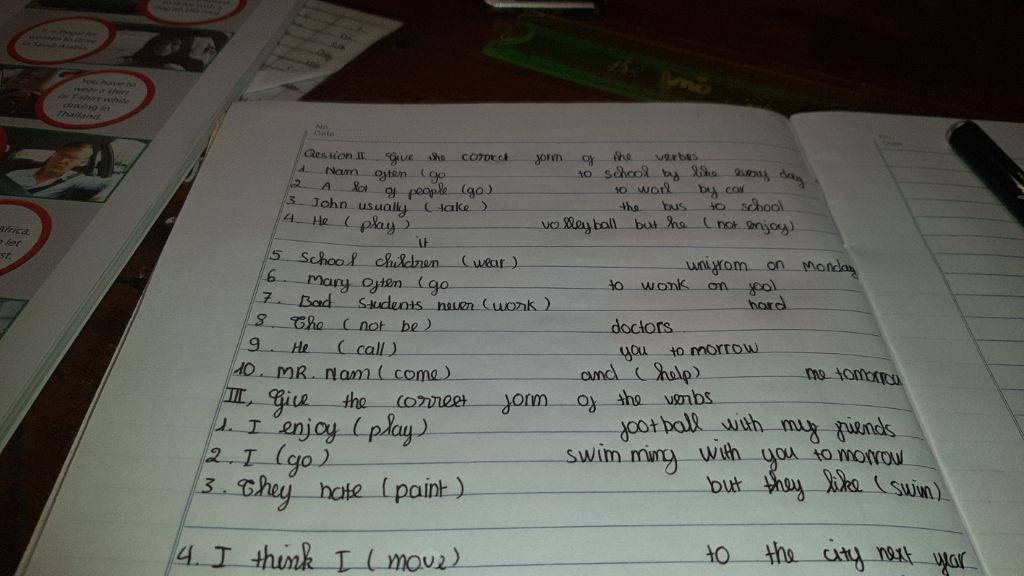 to drive with a
dog on the
It is illegal for
women to drive
in Saudi Arabia.
You have to
wear a shirt
or T-shirt while
driving in
Thailand.
Africa,
let
st.
No.
Date
Question II. Give the correct form of the verbs
1. Nam often (go to school by like every day.
2. A lot of people (go) to work by car
3. John usually (take) the bus to school
4. He (play) volleyball but he (not enjoy)
it
5. School children (wear) unifrom on Monday
6. Mary often (go to work on fool
7. Bad students never (work) hard
8. The (not be) doctors
9. He (call) you tomorrow
10. MR. Nam (come) and (help) me tomorrow
III, Give the correct form of the verbs
1. I enjoy (play) football with my friends
2. I (go) swimming with you tomorrow
3. They hate (paint) but they like (swim)
4. I think I (move) to the city next year